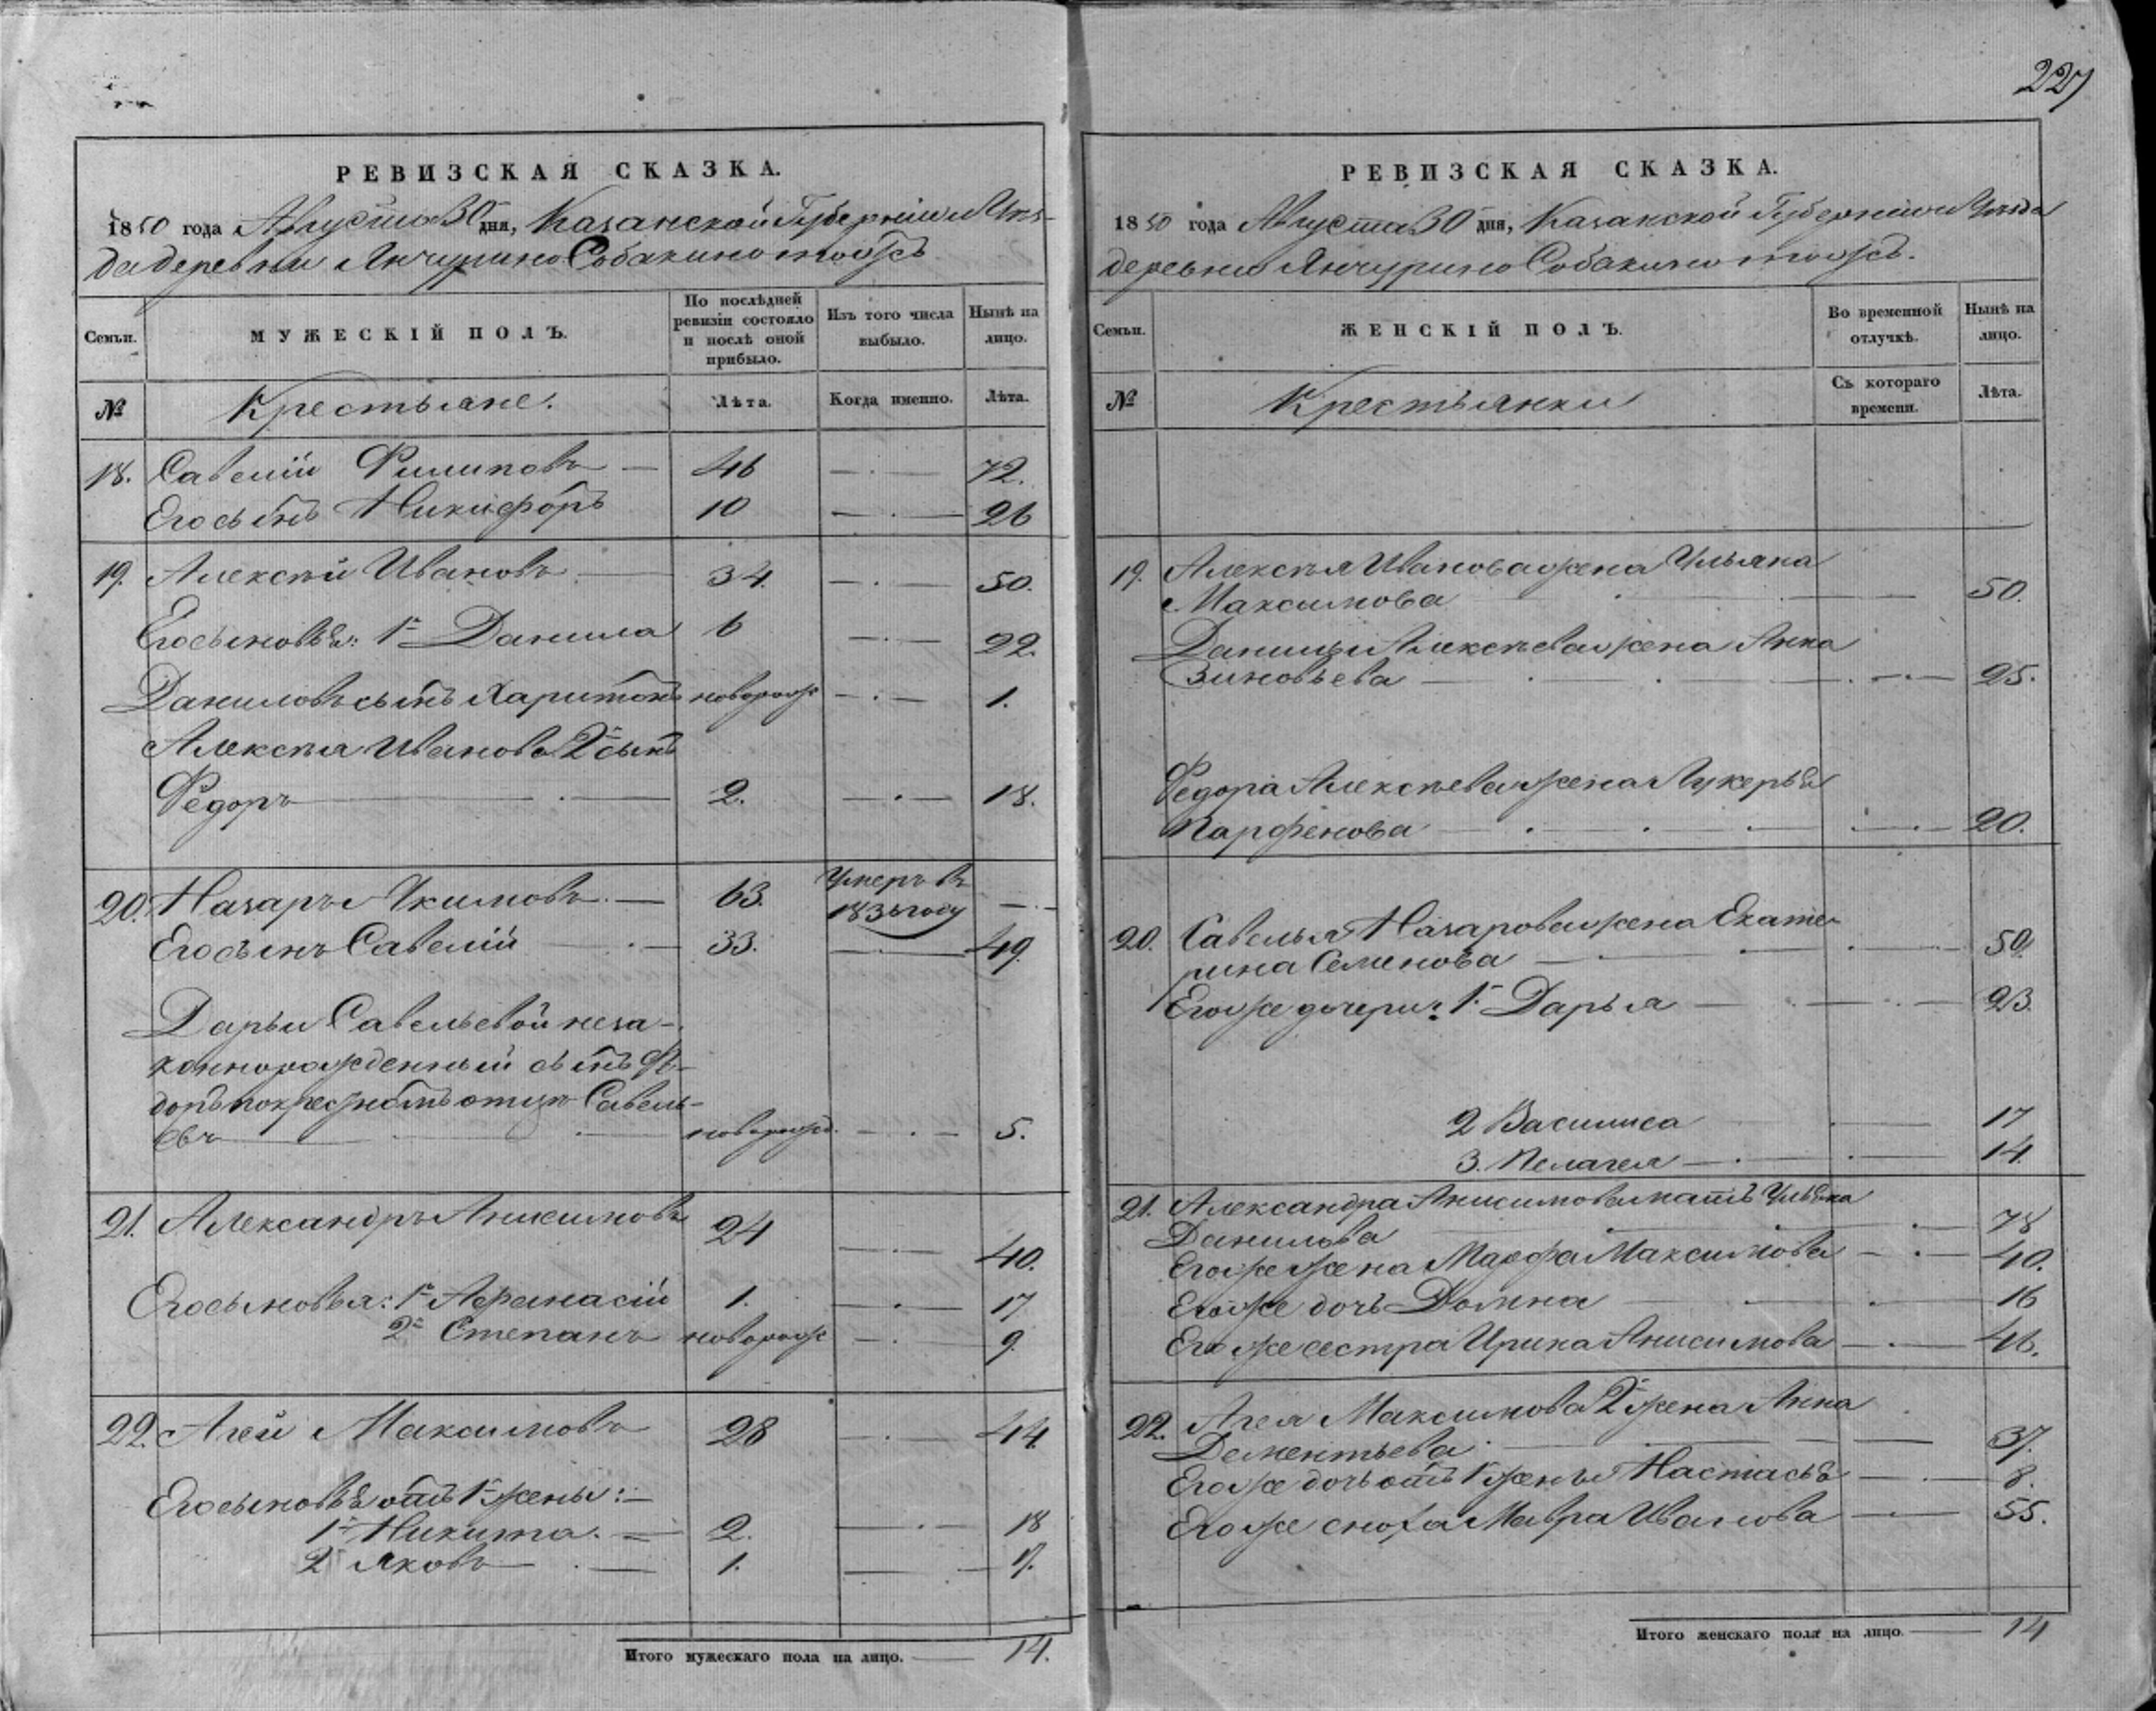 227
РЕВИЗСКАЯ СКАЗКА.
1850 года Августа 30 дня, Казанской Губерніи и Уѣз-
да деревни Янчурино Собакино тожъ
Семьи.
МУЖЕСКІЙ ПОЛЪ.
По послѣдней ревизіи состояло и послѣ оной прибыло.
Изъ того числа выбыло.
Нынѣ на лицо.
№
Крестьяне.
Лѣта.
Когда именно.
Лѣта.
18. Савелій Филиповъ — 46 — 72.
Его сынъ Никифоръ 10 — 26
19. Алексѣй Ивановъ — 34. — 50.
Его сыновья: 1й Данила 6 — 22.
Даниловъ сынъ Харитонъ новорож — 1.
Алексѣя Иванова 2й сынъ
Ѳедоръ — 2. — 18.
20. Назаръ Якимовъ — 63. Умеръ въ 1836 году —
Его сынъ Савелій — 33. — 49.
Дарьи Савельевой неза-
коннорожденный сынъ Ѳе-
доръ по крестномъ отцѣ Савель-
евъ — новорожд. — 5.
21. Александръ Анисимовъ 24 — 40.
Его сыновья: 1й Афанасій 1. — 17
2й Степанъ новорож — 9.
22. Агей Максимовъ 28 — 44.
Его сыновья отъ 1й жены:
1й Никита. — 2. — 18
2й Яковъ — 1. — 17.
Итого мужескаго пола на лицо. — 14.
РЕВИЗСКАЯ СКАЗКА.
1850 года Августа 30 дня, Казанской Губерніи и Уѣзда
деревни Янчурино Собакино тожъ.
Семьи.
ЖЕНСКІЙ ПОЛЪ.
Во временной отлучкѣ.
Нынѣ на лицо.
№
Крестьянки
Съ котораго времени.
Лѣта.
19. Алексѣя Иванова жена Ульяна
Максимова — 50.
Данилы Алексѣева жена Анна
Зиновьева — 25.
Ѳедора Алексѣева жена Лукерья
Парфенова — 20.
20. Савелья Назарова жена Екате-
рина Семенова — 50.
Его же дочери: 1. Дарья — 23.
2 Василиса — 17
3. Пелагея — 14.
21. Александра Анисимова мать Ульяна
Данилова — 78
Его же жена Марфа Максимова — 40.
Его же дочь Домна — 16
Его же сестра Ирина Анисимова — 46.
22. Агея Максимова 2я жена Анна
Дементьева — 37.
Его же дочь отъ 1й жены Настасья — 8.
Его же сноха Мавра Иванова — 55.
Итого женскаго пола на лицо. — 14